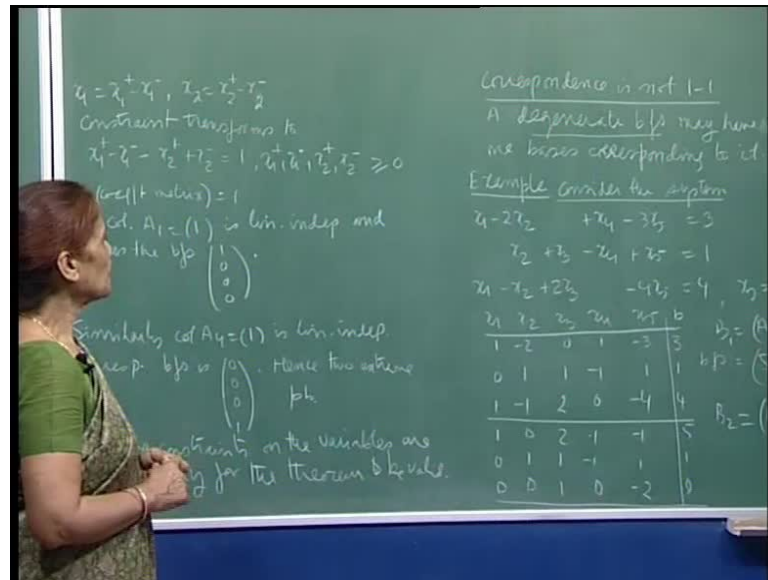 x₁ = x₁⁺ - x₁⁻, x₂ = x₂⁺ - x₂⁻
Constraint transforms to
x₁⁺ - x₁⁻ - x₂⁺ + x₂⁻ = 1, x₁⁺, x₁⁻, x₂⁺, x₂⁻ ≥ 0
(coefft matrix) = 1
col. A₁ = (1) is lin. indep and
the bfs (1 0 0 0).
Similarly col A₄ = (1) is lin. indep.
resp. bfs is (0 0 0 1). Hence two extreme
pts.
constraints on the variables are
for the theorem to be valid.
Correspondence is not 1-1
A degenerate bfs may have
bases corresponding to it.
Example Consider the system
x₁ - 2x₂ + x₄ - 3x₅ = 3
x₂ + x₃ - x₄ + x₅ = 1
x₁ - x₂ + 2x₃ - 4x₅ = 4,
x₁ x₂ x₃ x₄ x₅ b
1 -2 0 1 -3 3
0 1 1 -1 1 1
1 -1 2 0 -4 4
1 0 2 -1 -1 5
0 1 1 -1 1 1
0 0 1 0 -2 0
B₁ = (A
bfs = (5
B₂ = (